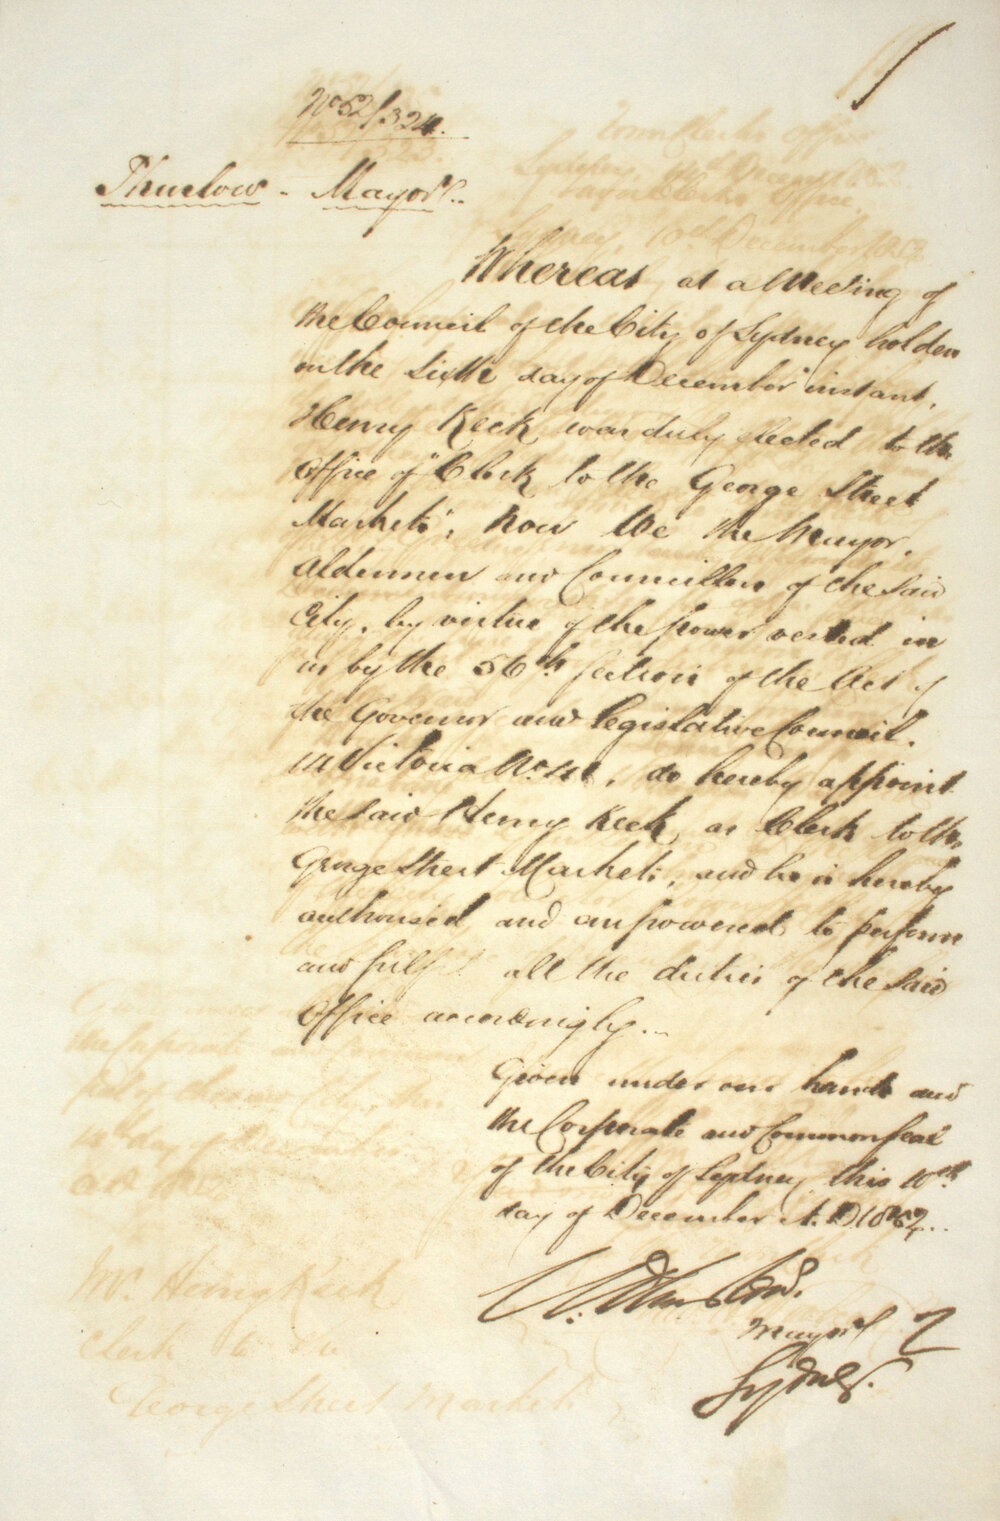 No 52/324.
Thurlow - Mayor.
Whereas at a Meeting of
the Council of the City of Sydney holden
on the Sixth day of December instant,
Henry Keck was duly elected to the
Office of "Clerk to the George Street
Markets", Now We the Mayor,
Aldermen and Councillors of the said
City, by virtue of the power vested in
us by the 56th section of the Act of
the Governor and Legislative Council,
14 Victoria No. 41, do hereby appoint
the said Henry Keck, as Clerk to the
George Street Markets, and he is hereby
authorised and empowered to perform
and fulfil all the duties of the said
Office accordingly.
Given under our hands and
the Corporate and Common Seal
of the City of Sydney this 10th
day of December A.D. 1852.
Mayor
Sydney.
Mr. Henry Keck
Clerk to the
George Street Markets